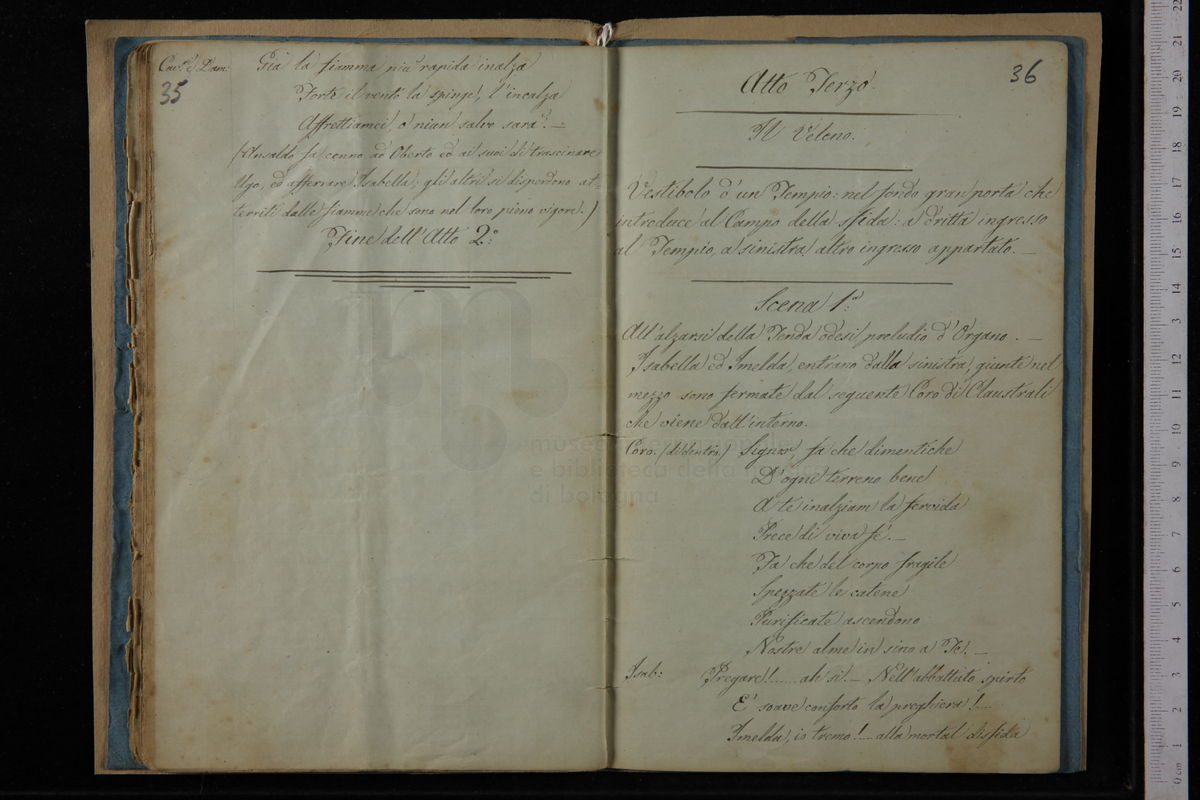 Cav.ri e Dam: Già la fiamma più rapida inalza
35
Forte il vento la spinge, l'incalza
Affrettiamci, o niun salvo sarà. —
(Ansaldo fa cenno ad Oberto ed ai suoi di trascinare
Ugo, ed afferrare Isabella; gli altri si disperdono at-
territi dalle fiamme che sono nel loro pieno vigore.)
Fine dell'Atto 2.o
36
Atto Terzo.
Il Veleno.
Vestibolo d'un Tempio: nel fondo gran porta che
introduce al Campo della sfida: a dritta ingresso
al Tempio, a sinistra altro ingresso appartato. —
Scena 1.a
All'alzarsi della Tenda odesi preludio d'Organo. —
Isabella ed Imelda, entrano dalla sinistra, giunte nel
mezzo sono fermate dal seguente Coro di Claustrali
che viene dall'interno.
Coro. (di dentro.) Signor, fa che dimentiche
D'ogni terreno bene
A te inalziam la fervida
Prece di viva fé. —
Fa che del corpo fragile
Spezzate le catene
Purificate ascendono
Nostre alme in sino a Te. —
Isab: Pregare!..... ah si! — Nell'abbattuto spirto
E' soave conforto la preghiera!....
Imelda, io tremo!.... alla mortal disfida
museo internazionale
e biblioteca della musica
di bologna